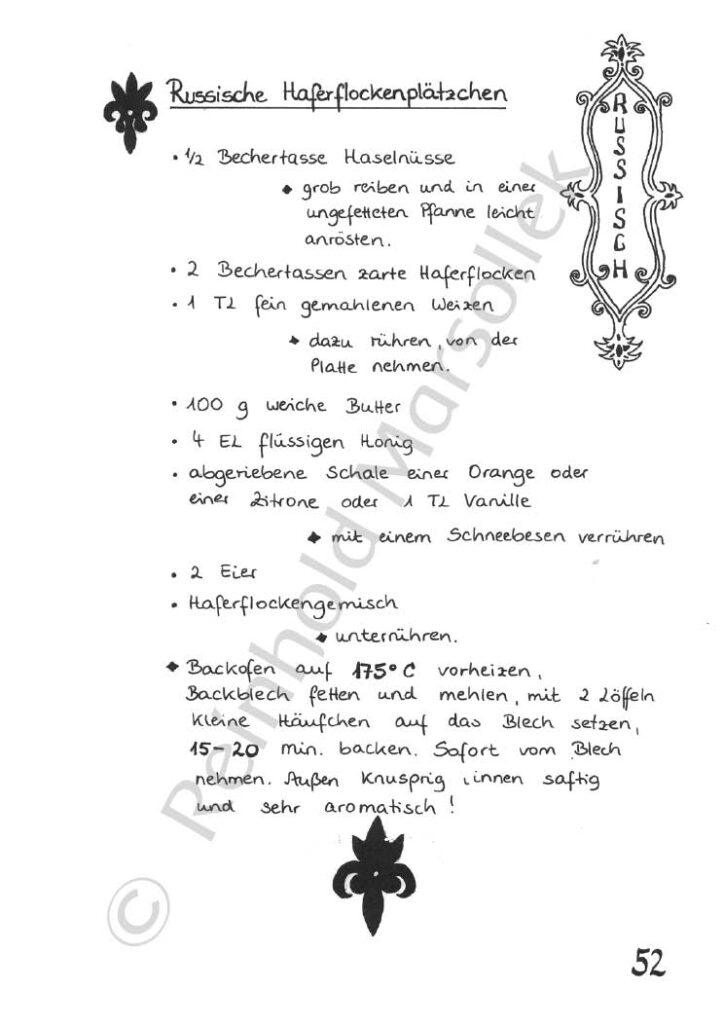 Russische Haferflockenplätzchen
RUSSISCH
• 1/2 Bechertasse Haselnüsse
grob reiben und in einer
ungefetteten Pfanne leicht
anrösten.
• 2 Bechertassen zarte Haferflocken
• 1 TL fein gemahlenen Weizen
dazu rühren, von der
Platte nehmen.
• 100 g weiche Butter
• 4 EL flüssigen Honig
• abgeriebene Schale einer Orange oder
einer Zitrone oder 1 TL Vanille
mit einem Schneebesen verrühren
• 2 Eier
• Haferflockengemisch
unterrühren.
Backofen auf 175° C vorheizen,
Backblech fetten und mehlen, mit 2 Löffeln
kleine Häufchen auf das Blech setzen,
15-20 min. backen. Sofort vom Blech
nehmen. Außen knusprig, innen saftig
und sehr aromatisch!
© Reinhold Marsollek
52